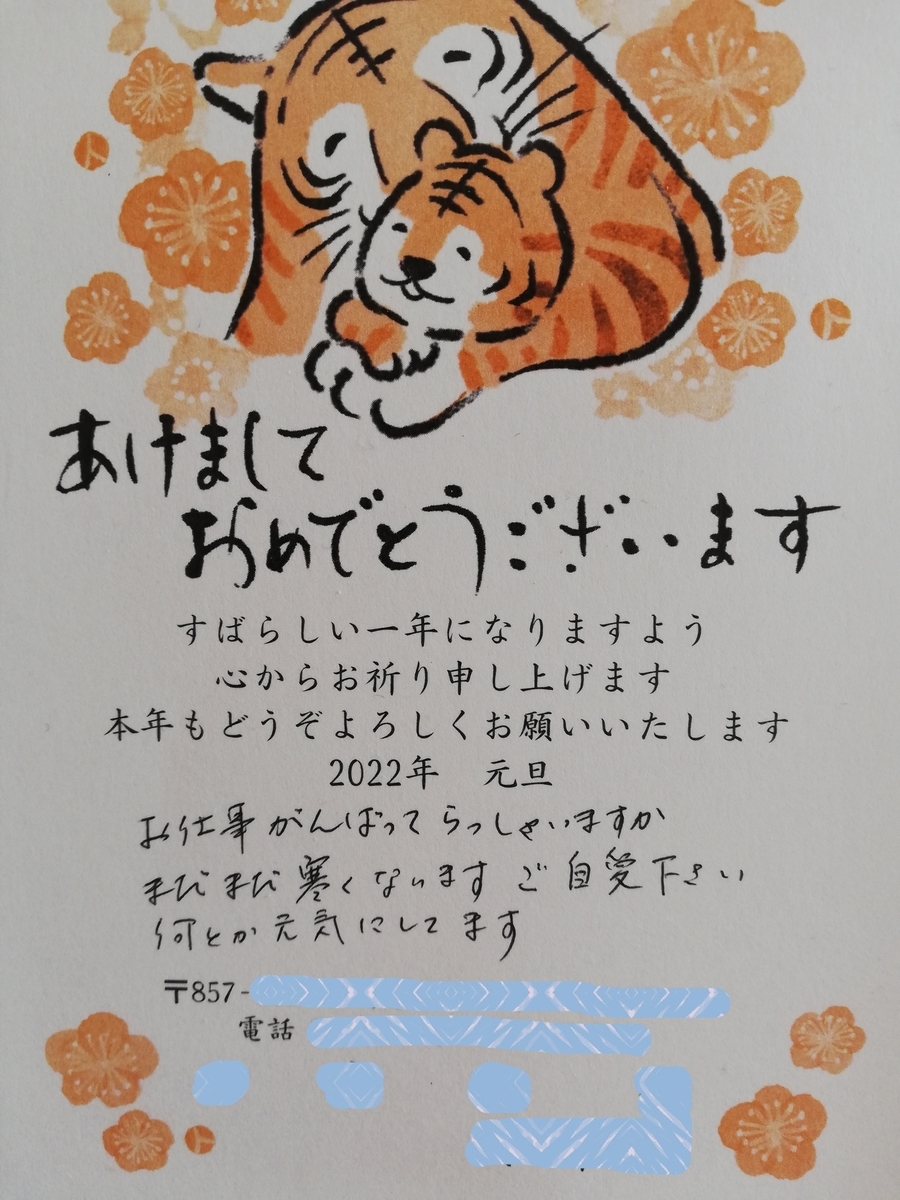 あけまして
おめでとうございます
すばらしい一年になりますよう
心からお祈り申し上げます
本年もどうぞよろしくお願いいたします
2022年　元旦
お仕事がんばってらっしゃいますか
まだまだ寒くなります ご自愛下さい
何とか元気にしてます
〒857-
電話